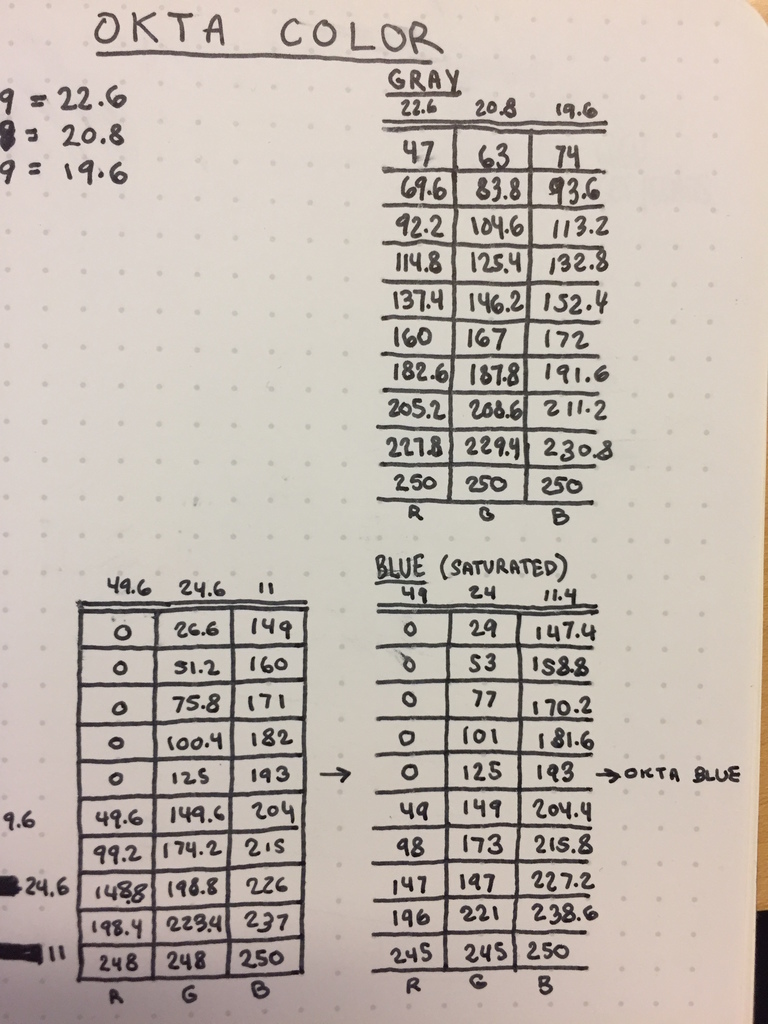 OKTA COLOR
9 = 22.6
8 = 20.8
9 = 19.6
GRAY
22.6 20.8 19.6
47 63 74
69.6 83.8 93.6
92.2 104.6 113.2
114.8 125.4 132.8
137.4 146.2 152.4
160 167 172
182.6 187.8 191.6
205.2 208.6 211.2
227.8 229.4 230.8
250 250 250
R G B
49.6 24.6 11
0 26.6 149
0 51.2 160
0 75.8 171
0 100.4 182
0 125 193 →
49.6 149.6 204
99.2 174.2 215
148.8 198.8 226
198.4 223.4 237
248 248 250
R G B
9.6
24.6
11
BLUE (SATURATED)
49 24 11.4
0 29 147.4
0 53 158.8
0 77 170.2
0 101 181.6
0 125 193 → OKTA BLUE
49 149 204.4
98 173 215.8
147 197 227.2
196 221 238.6
245 245 250
R G B